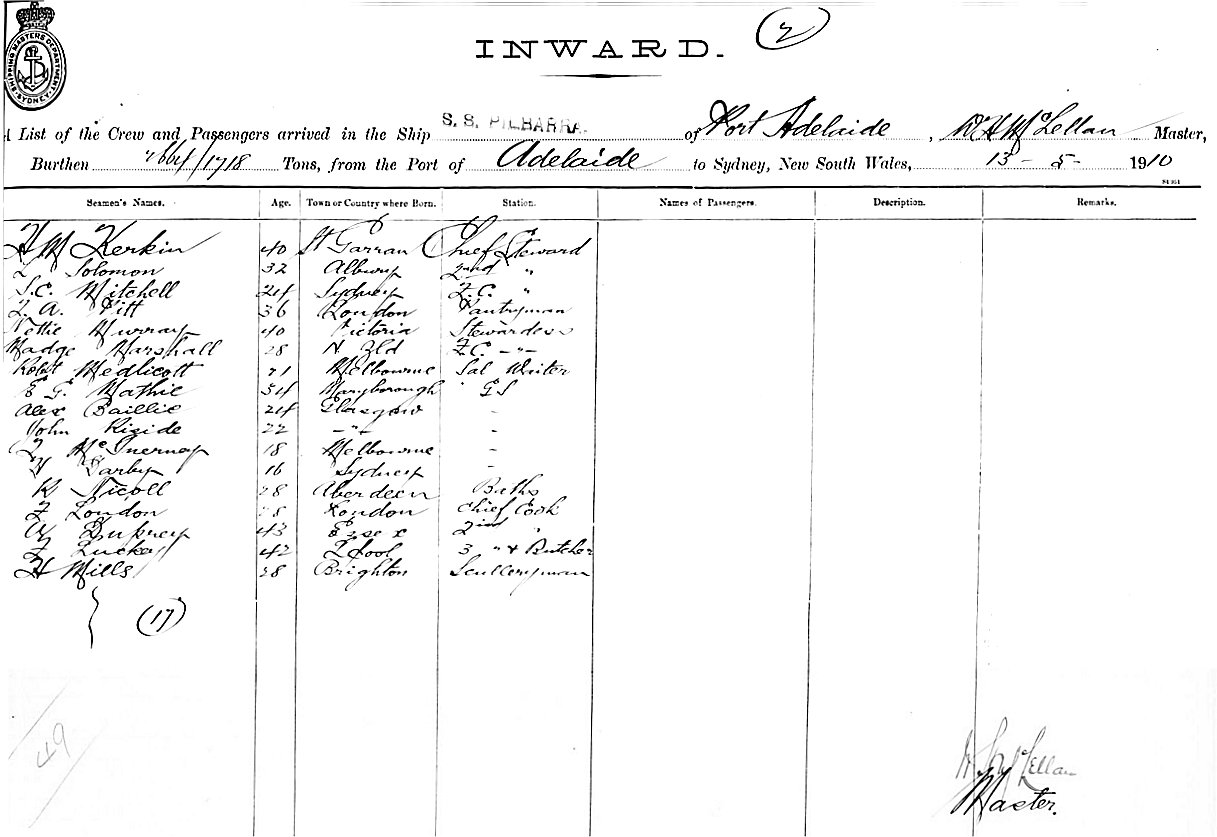 2
INWARD.
SHIPPING MASTERS DEPARTMENT SYDNEY
A List of the Crew and Passengers arrived in the Ship S. S. PILBARRA. of Port Adelaide, McLellan Master,
Burthen /1718 Tons, from the Port of Adelaide to Sydney, New South Wales, 13 - 5 - 1910
Seamen's Names. Age. Town or Country where Born. Station. Names of Passengers. Description. Remarks.
H M Kerkin 40 St Garran Chief Steward
Solomon 32 Albury 2nd "
S.C. Mitchell 24 Sydney F.C. "
Pitt 36 London Pantryman
Nettie Murray 40 Victoria Stewardess
Madge Marshall 28 N Zld F.C. -"-
Robt Medlicott 21 Melbourne Sal Waiter
E G. Mathie 34 Maryborough " GS
Alex Baillie 24 Glasgow -
John 22 -"- -
McInerney 18 Melbourne -
Darby 16 Sydney
Nicoll 28 Aberdeen Baths
F London 28 London Chief Cook
Duprey 43 Essex 2nd "
Luckey 42 L'pool 3 " & Butcher
H Mills 28 Brighton Sculleryman
(17)
49
McLellan
Master.